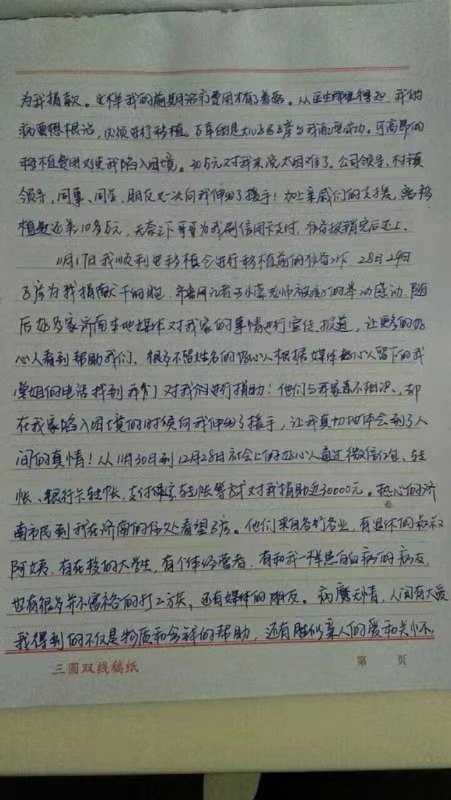 为我捐款。这样我的前期治疗费用才有了着落。从医生那里得知,我的
病要想根治,必须进行移植。万幸的是大儿子与我配型成功。可高昂的
移植费用又使我陷入困境。30万元对我来说太困难了。公司领导、村镇
领导,同事、同学、朋友又一次向我伸出了援手!加上亲戚们的支援,离移
植还差10多万元,无奈之下哥哥为我刷信用卡支付,待报销完后还上。
11月17日我顺利进移植仓进行移植前的准备工作。28日29日
为我捐献干细胞,齐鲁网记者 老师被 的举动感动,随
后好多家济南当地媒体对我家的事情进行宣传、报道,让更多的好
心人看到帮助我们。很多不留姓名的好心人根据媒体 留下的我
堂姐的电话找到我们对我们进行捐助!他们与我家素不相识,却
在我家陷入困境的时候向我伸出了援手,让我真切地体会到了人
间的真情!从11月30日到12月28日社会上的好心人通过微信红包、转
帐、银行卡转帐、支付宝转帐等方式对我捐助近30000元。热心的济
南市民到我在济南的住处看望 。他们来自各行各业,有退休的叔叔
阿姨,有在校的大学生,有个体经营者,有和我一样患白血病的病友,
也有很多并不富裕的打工族,还有媒体的朋友。病魔无情,人间有大爱
我得到的不仅是物质和金钱的帮助,还有胜似亲人的爱和关怀,
三圆双线稿纸
第 页